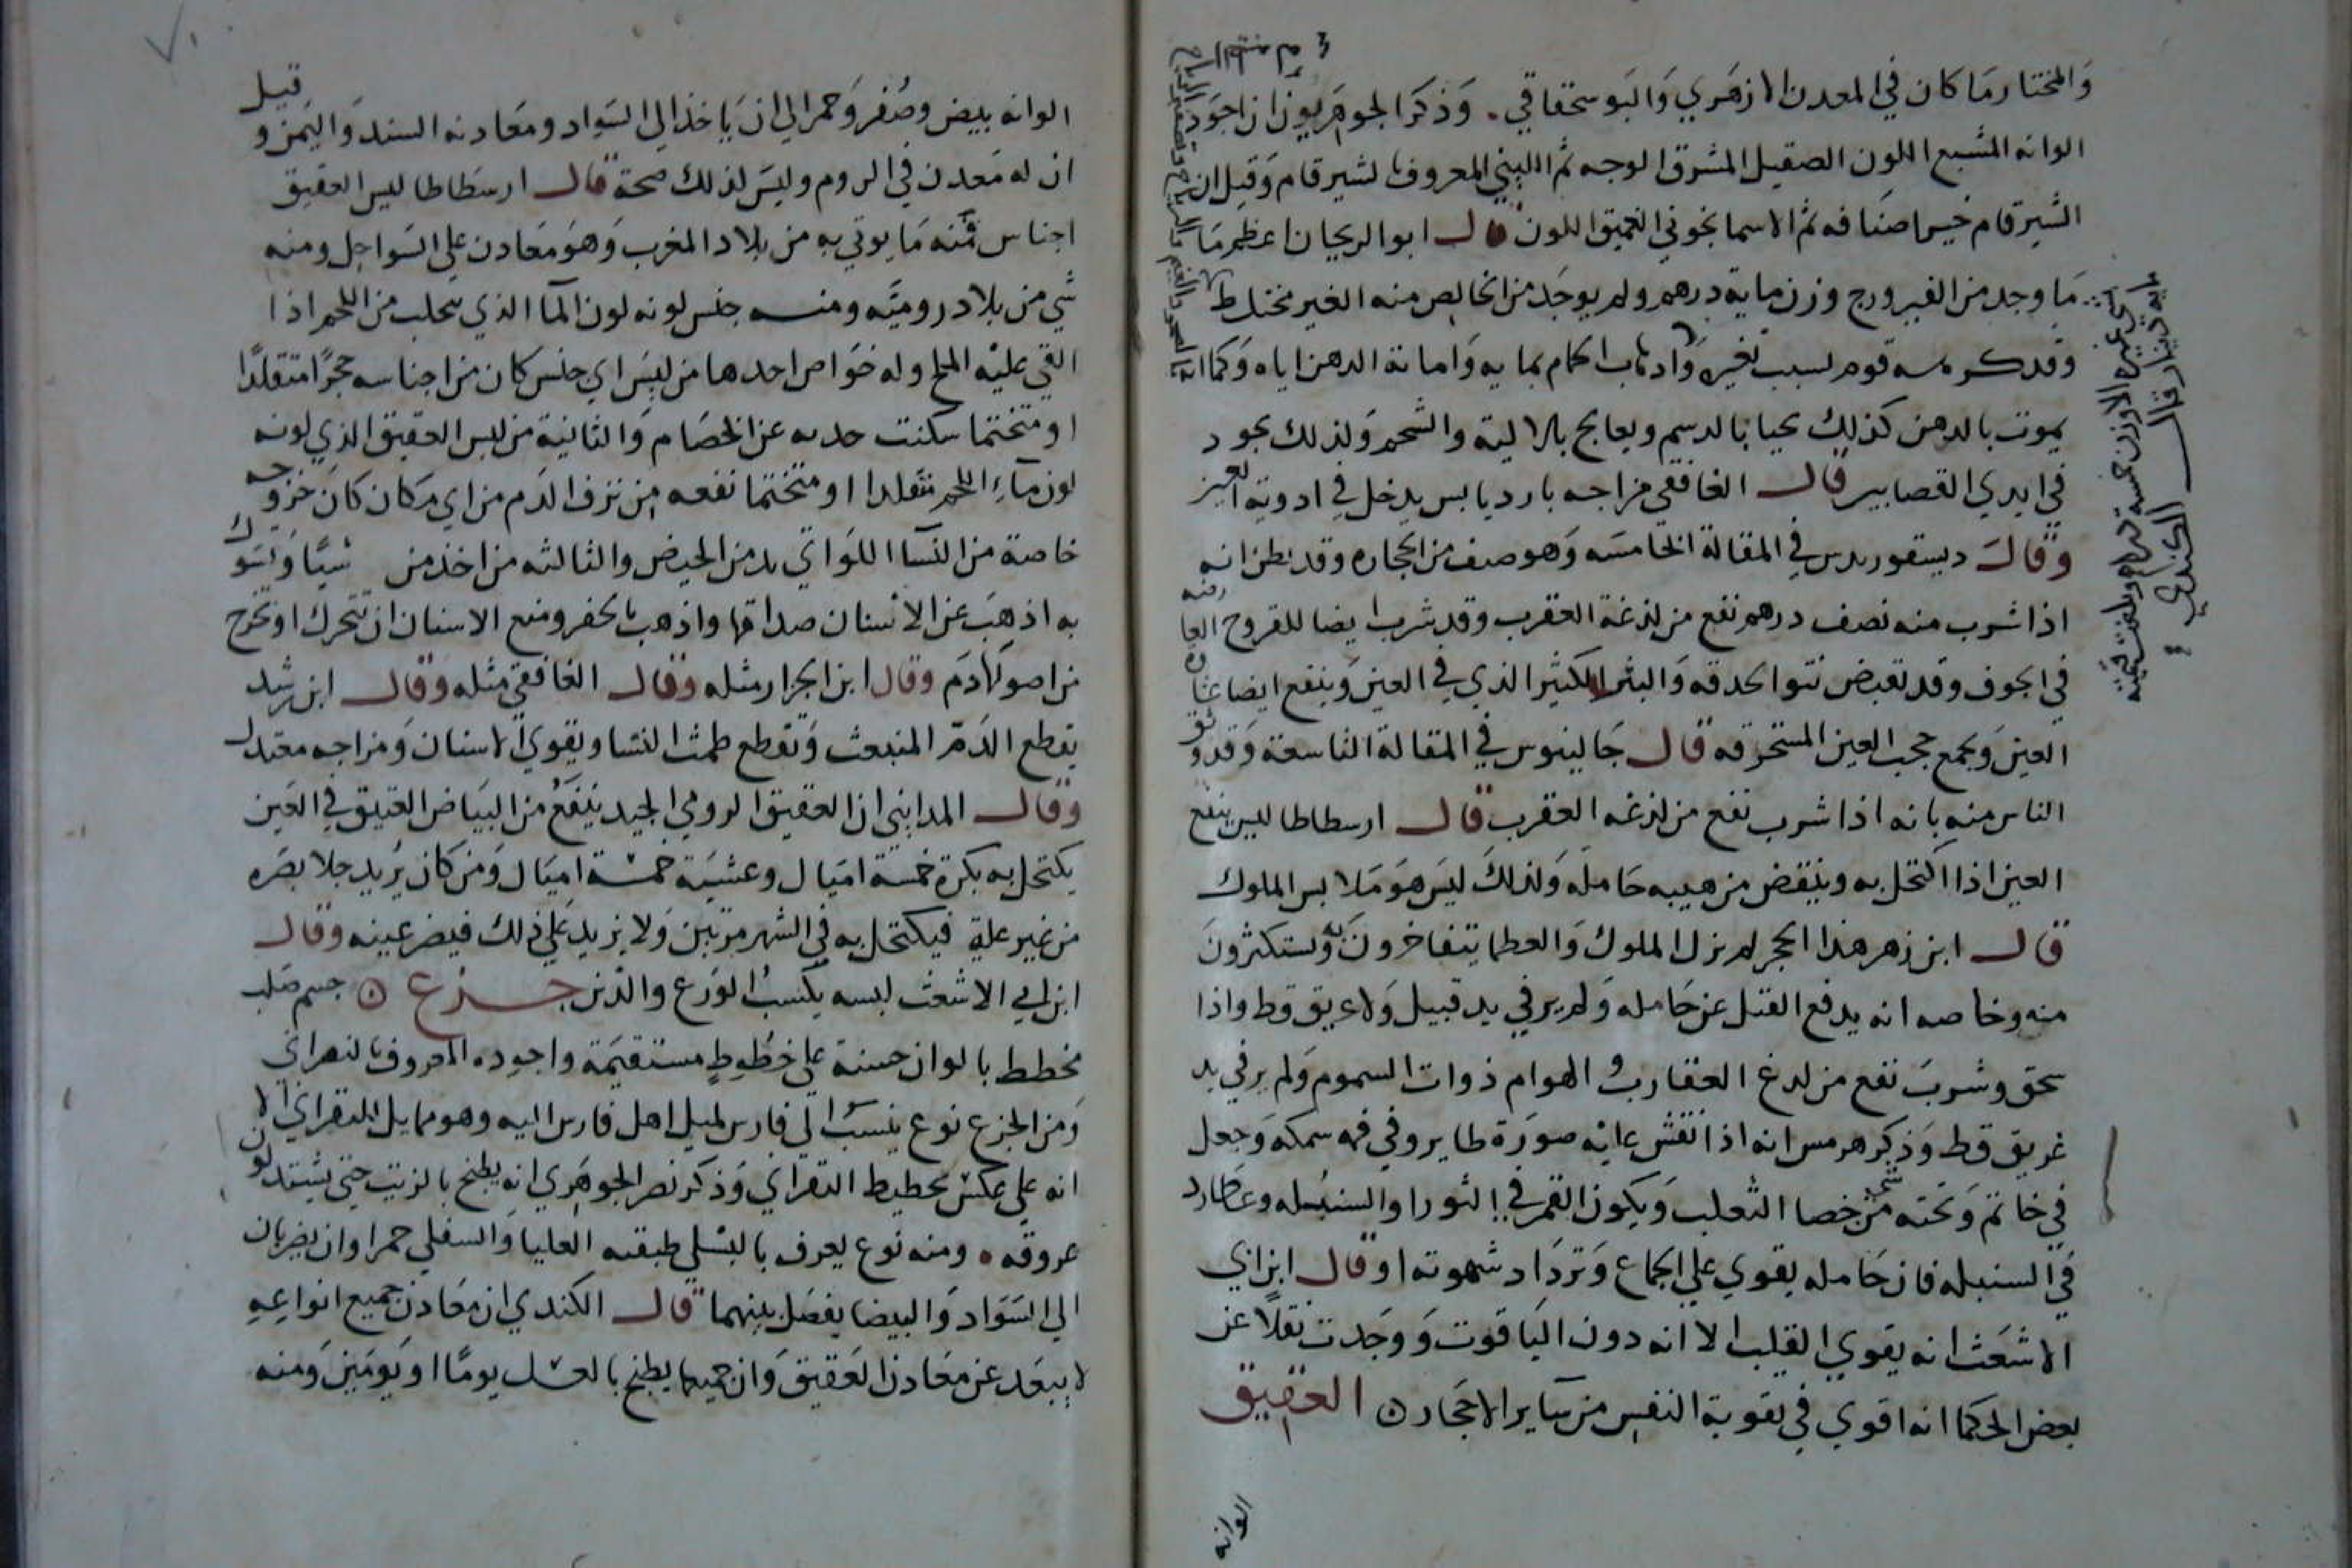 والمختار ما كان في المعدن الازهري والبوسحقاقي. وذكر الجوهريون ان اجود
الوانه المشبع اللون الصقيل المشرق الوجه ثم اللبني المعروف بشيرقام وقيل ان
الشيرقام خير اصنافه ثم الاسمانجوني العميق اللون قال ابو الريحان اعظم ما
ما وجد من الفيروزج وزن ماية درهم ولم يوجد من الخالص منه الغير مختلط
وقد كرهه قوم لسبب تغيره واذهاب الحمام بمايه وامانة الدهن اياه وكما انه
يموت بالدهن كذلك يحيا بالدسم ويعالج بالالية والشحم ولذلك يجود
في ايدي القصابين قال الغافقي مزاجه بارد يابس يدخل في ادوية العين
وقال ديسقوريدس في المقالة الخامسه وهو صنف من الحجاره وقد نظن انه
اذا شرب منه نصف درهم نفع من لذغة العقرب وقد شرب ايضا للقروح العارضه
في الجوف وقد تقبض نتوا الحدقه والبثر الكثير الذي في العين وينفع ايضا غشاوة
العين ويجمع حجب العين المنخرقه قال جالينوس في المقالة التاسعة وقد وثق
الناس منه بانه اذا شرب نفع من لذغه العقرب قال ارسطاطاليس ينفع
العين اذا اكتحل به وينقض من هيبه حامله ولذلك ليس هو ملابس الملوك
قال ابن زهر هذا الحجر لم تزل الملوك والعظما يتفاخرون به ويستكثرون
منه وخاصه انه يدفع القتل عن حامله ولم ير في يد قتيل ولا غريق قط واذا
سحق وشرب نفع من لدغ العقارب والهوام ذوات السموم ولم ير في يد
غريق قط وذكر هرمس انه اذا نقش عليه صورة طاير وفي فمه سمكه وجعل
في خاتم وتحته شي من خصا الثعلب ويكون القمر في الثور او السنبله وعطارد
في السنبله فان حامله يقوي على الجماع وتزداد شهوته او قال ابن ابي
الاشعث انه يقوي القلب الا انه دون الياقوت ووجدت نقلا عن
بعض الحكما انه اقوي في تقوية النفس من ساير الاحجار ن العقيق
الوانه
الوانه بيض وصفر وحمر الي ان ياخذ الي السواد ومعادنه السند واليمن وقيل
ان له معدن في الروم وليس لذلك صحة قال ارسطاطاليس العقيق
اجناس فمنه ما يوتي به من بلاد المغرب وهو معادن علي السواحل ومنه
شي من بلاد روميه ومنه جنس لونه لون الما الذي يتحلب من اللحم اذا
القي عليه الملح وله خواص احدها من لبس اي جنس كان من اجناسه حجرا متقلدا
او متختما سكنت حدته عن الخصام والثانية من لبس العقيق الذي لونه
لون ماء اللحم متقلدا او متختما نفعه من نزف الدم من اي مكان كان خروجه
خاصة من النسا اللواتي يد من الحيض والثالثه من اخذ من شيا وتسوك
به اذهب عن الاسنان صداتها واذهب بالحفر ومنع الاسنان ان تتحرك او تخرج
من اصولها دم وقال ابن الجزار مثله وقال الغافقي مثله وقال ابن رشد
يقطع الدم المنبعث وتقطع طمث النسا ويقوي الاسنان ومزاجه معتدل
وقال المدايني ان العقيق الرومي الجيد ينفع من البياض العتيق في العين
يكتحل به بكرة خمسة اميال وعشية خمسة اميال ومن كان يريد جلا بصره
من غير علة فيكتحل به في الشهر مرتين ولا يزيد علي ذلك فيضر عينه وقال
ابن ابي الاشعث لبسه يكسب الورع والدين جزع ن جسم صلب
مخطط بالوان حسنة علي خطوط مستقيمة واجوده المعروف بالنعراني
ومن الجزع نوع ينسب الي فارس لميل اهل فارس اليه وهو مايل النقراني الا
انه علي عكس تخطيط النقراني وذكر نصر الجوهري انه يطبخ بالزيت حتي يشتد لون
عروقه ه ومنه نوع يعرف بالبسلي طبقته العليا والسفلي حمراوان يضربان
الي السواد والبيضا يفصل بينهما قال الكندي ان معادن جميع انواعه
لا يبعد عن معادن العقيق وان جميعها يطبخ بالعسل يوما او يومين ومنه